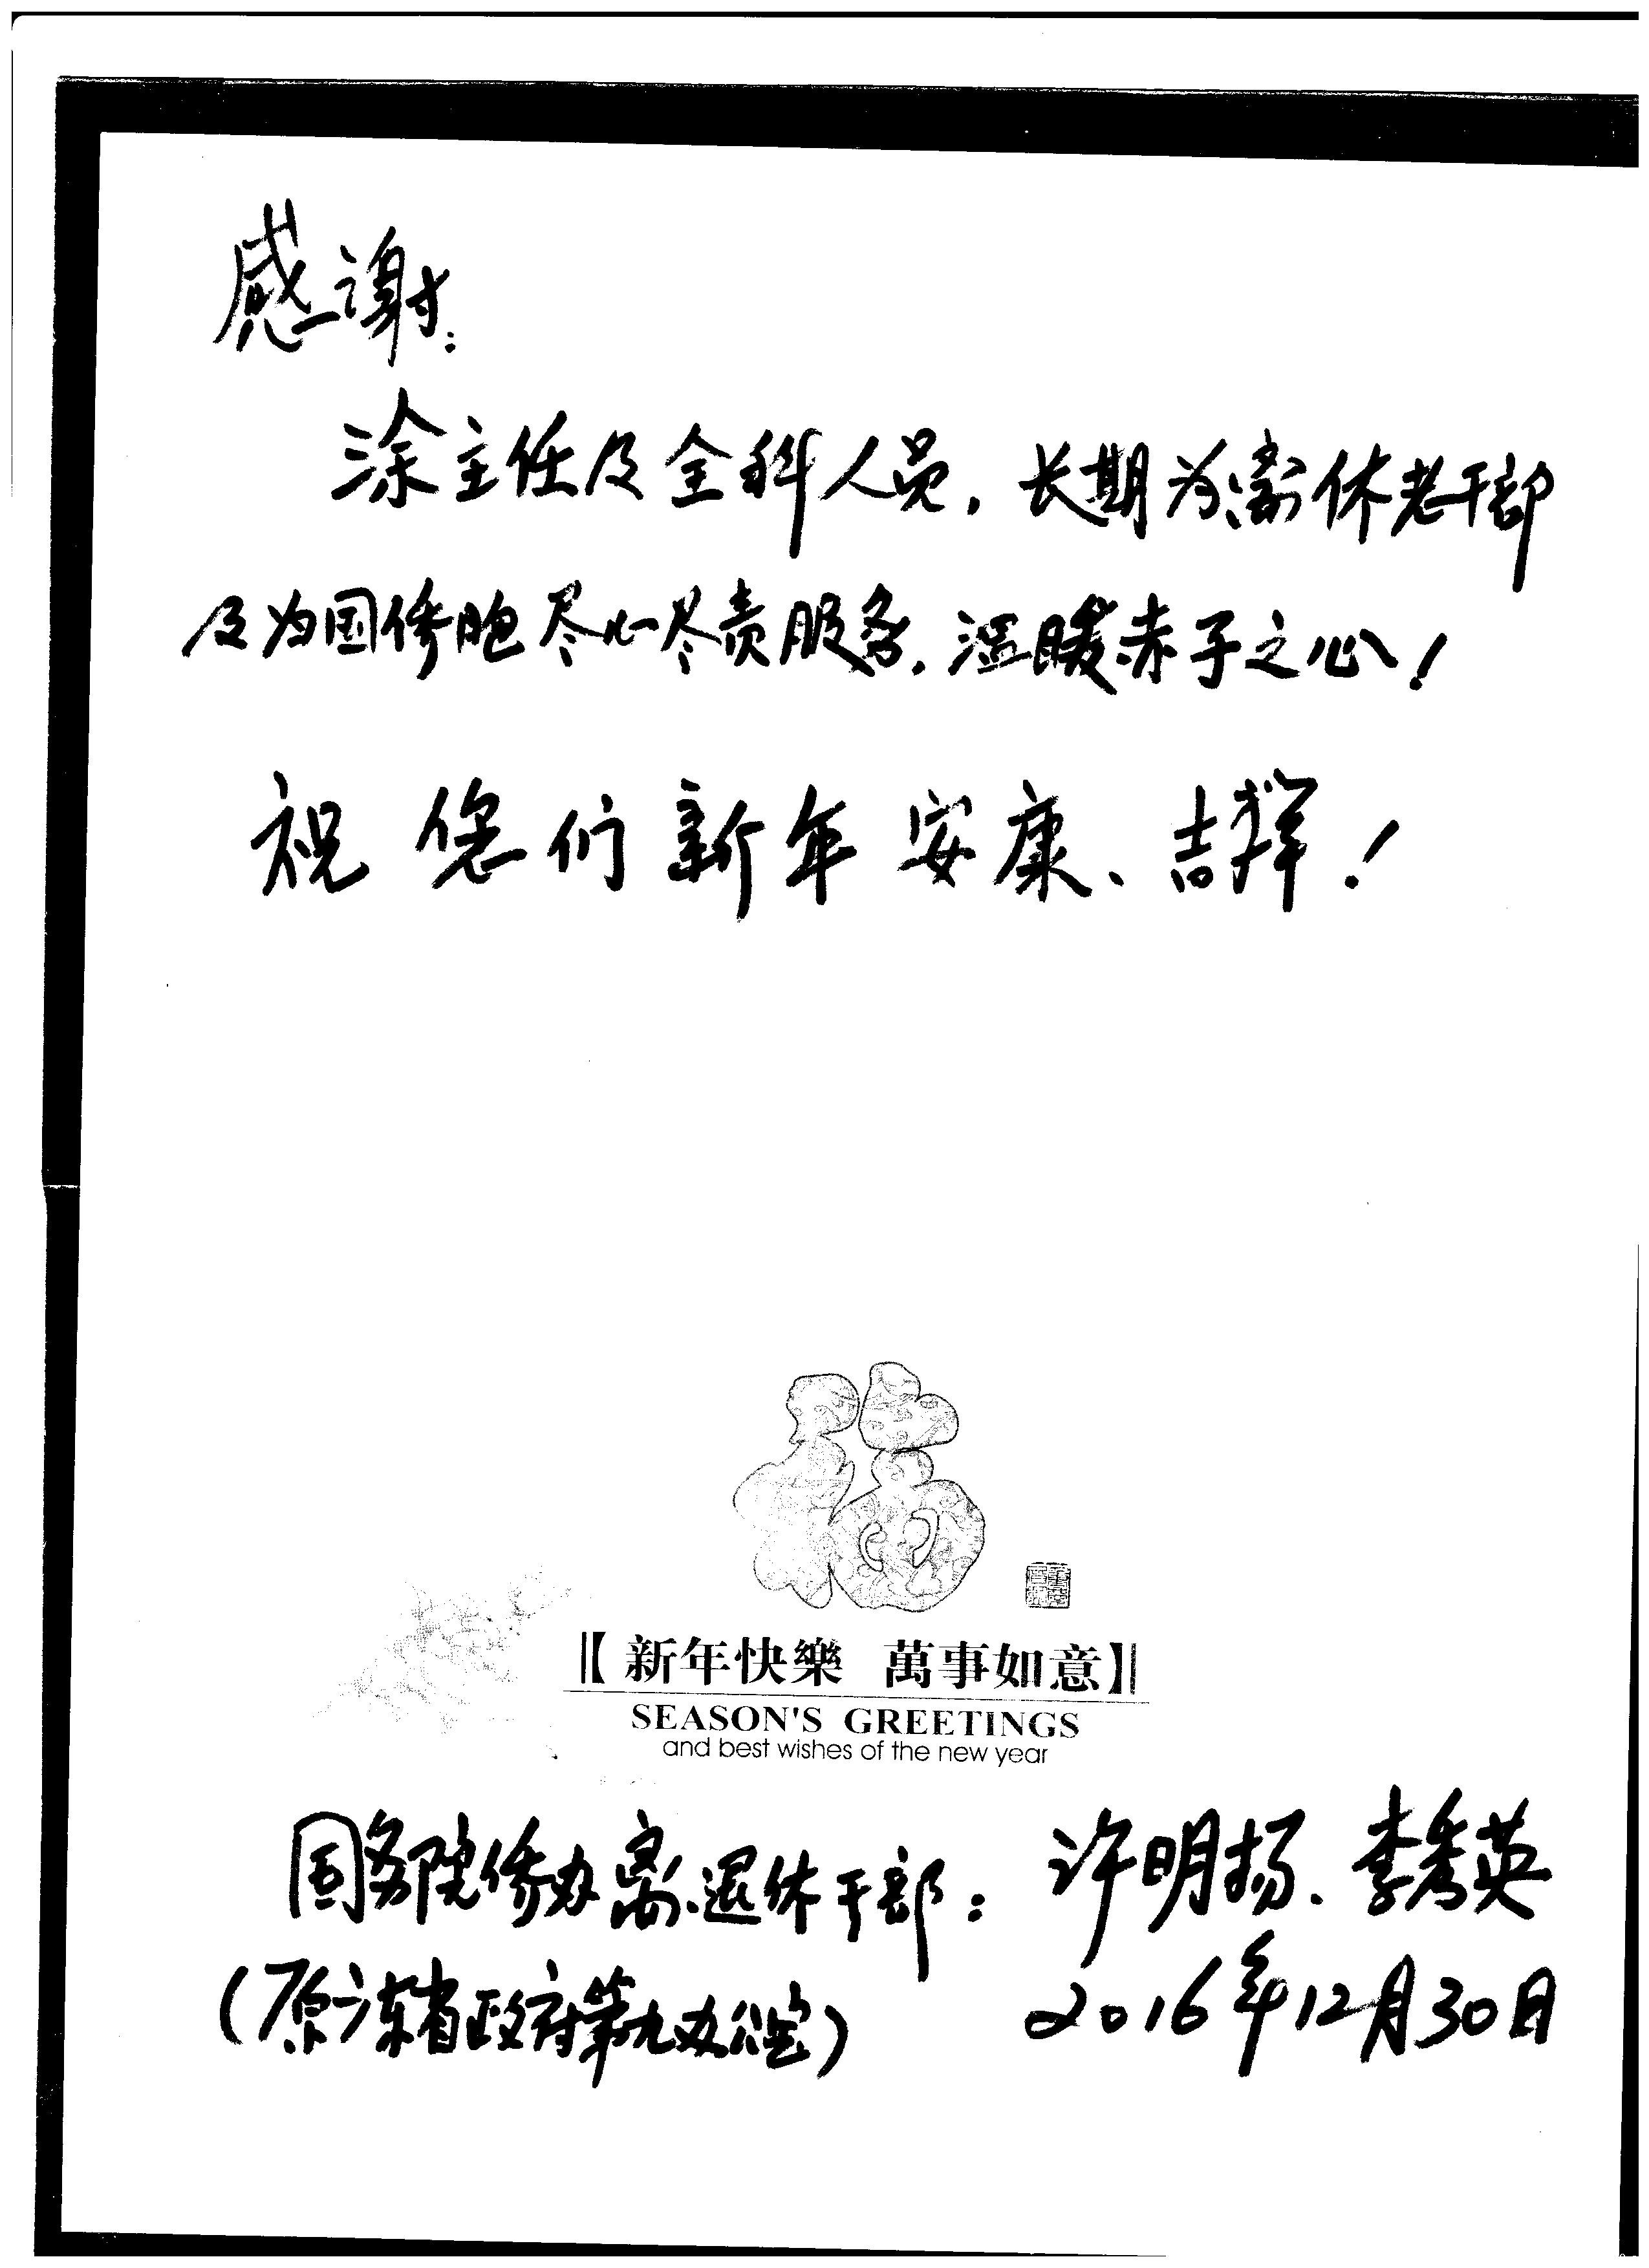 感谢:
涂主任及全科人员,长期为离休老干部
及为国侨胞尽心尽责服务,温暖赤子之心!
祝您们新年安康、吉祥!
福
【新年快樂 萬事如意】
SEASON'S GREETINGS
and best wishes of the new year
国务院侨办离退休干部: 许明扬、李秀英
(原广东省政府第九办公室) 2016年12月30日